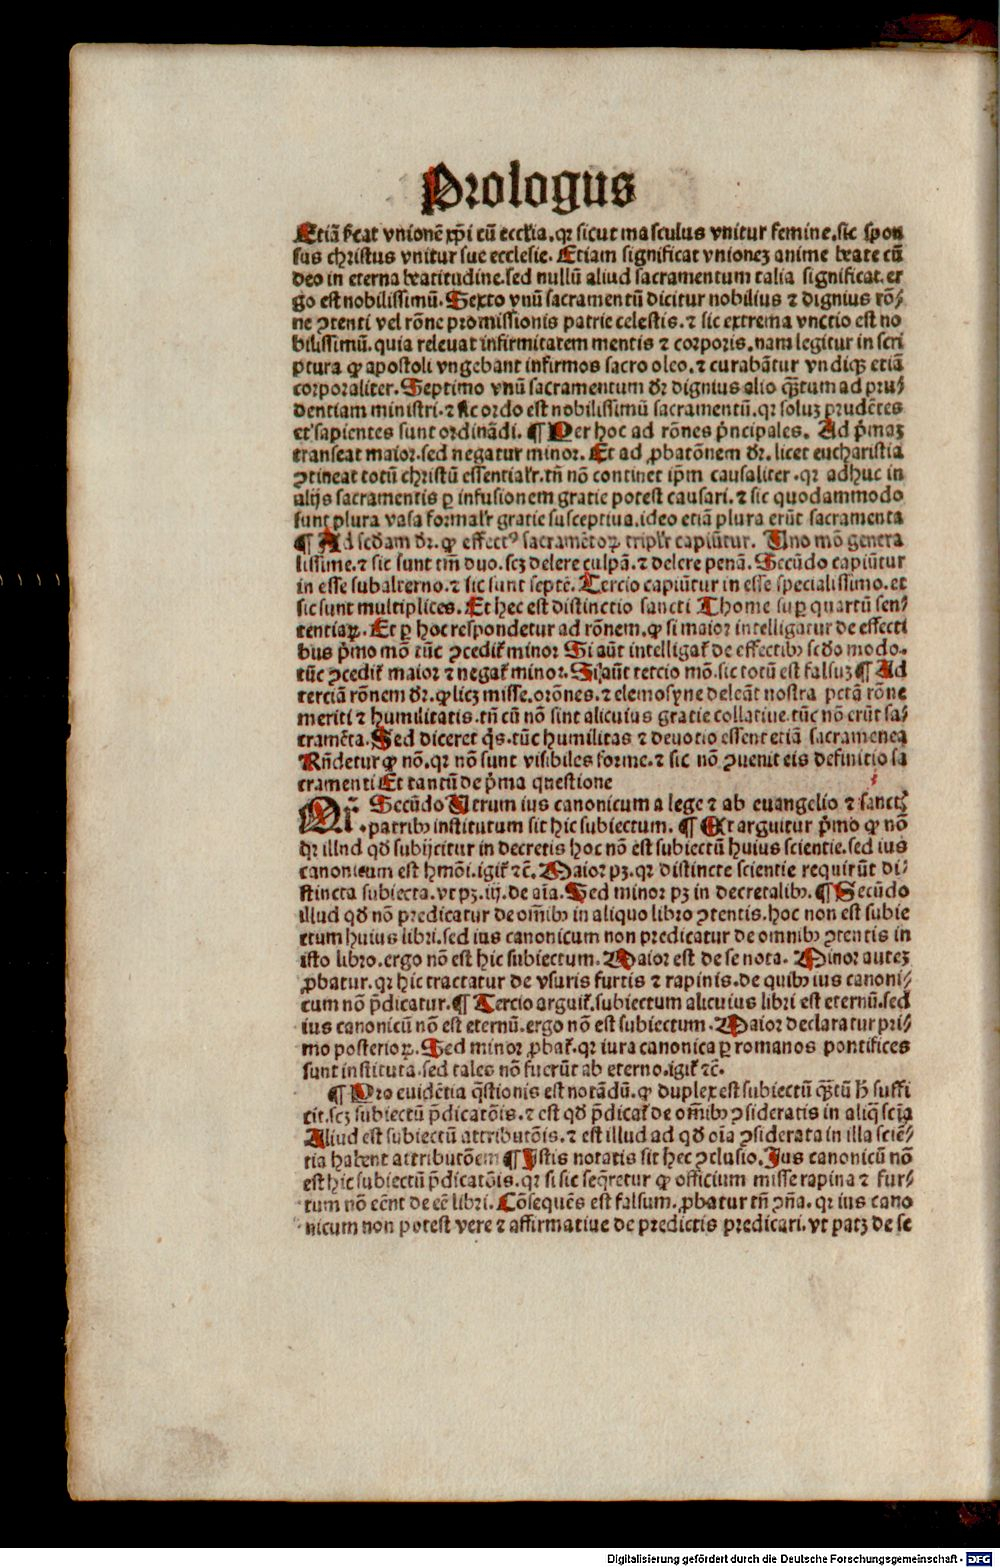 Prologus
Etiā ſcat vnionē xp̄i cū eccl̄ia. qꝛ ſicut maſculus vnitur femine. ſic ſpon
ſus chriſtus vnitur ſue eccleſie. Etiam ſignificat vnionez anime beate cū
deo in eterna beatitudine. ſed nullū aliud ſacramentum talia ſignificat. er
go eſt nobiliſſimū. Sexto vnū ſacramentū dicitur nobilius ⁊ dignius rō⸗
ne ꝯtenti vel rōne promiſſionis patrie celeſtis. ⁊ ſic extrema vnctio eſt no
biliſſimū. quia releuat infirmitatem mentis ⁊ corporis. nam legitur in ſcri
ptura ꝙ apoſtoli vngebant infirmos ſacro oleo. ⁊ curabātur vndiqꝫ etiā
corporaliter. Septimo vnū ſacramentum dr̄ dignius alio qꝫtum ad pru⸗
dentiam miniſtri. ⁊ ſic ordo eſt nobiliſſimū ſacramentū. qꝛ ſoluꝫ prudētes
et ſapientes ſunt ordināndi. ¶ Per hoc ad rōnes p̄ncipales. Ad p̄maꝫ
tranſeat maior. ſed negatur minor. Et ad ꝓbatōnem dr̄. licet euchariſtia
ꝯtineat totū chriſtū eſſentialr̄. tn̄ nō continet ip̄m cauſaliter. qꝛ adhuc in
alijs ſacramentis ꝑ infuſionem gratie poteſt cauſari. ⁊ ſic quodammodo
ſunt plura vaſa formalr̄ gratie ſuſceptiua. ideo etiā plura erūt ſacramenta
¶ Ad ſcḋam dr̄. ꝙ effectꝰ ſacramētoꝝ triplr̄ capiūtur. Uno mō genera
liſſime. ⁊ ſic ſunt tm̄ duo. ſcꝫ delere culpā. ⁊ delere penā. Secūdo capiūtur
in eſſe ſubalterno. ⁊ ſic ſunt ſeptē. Tercio capiūtur in eſſe ſpecialiſſimo. et
ſic ſunt multiplices. Et hec eſt diſtinctio ſancti Thome ſuꝑ quartū ſen⸗
tentiaꝝ. Et ꝑ hoc reſpondetur ad rōnem. ꝙ ſi maior intelligatur de effecti
bus p̄mo mō tūc ꝯcedit̄ minor Si aūt intelligat̄ de effectibꝰ ſcḋo modo.
tūc ꝯcedit̄ maior ⁊ negat̄ minor. Si aūt tercio mō. ſic totū eſt falſuꝫ ¶ Ad
terciā rōnem dr̄. ꝙ licꝫ miſſe. orōnes. ⁊ elemoſyne deleāt noſtra pctā rōne
meriti ⁊ humilitatis. tn̄ cū nō ſint alicuius gratie collatiue. tūc nō erūt ſa⸗
cramēta. Sed diceret q̄s. tūc humilitas ⁊ deuotio eſſent etiā ſacramenta
Rn̄detur ꝙ nō. qꝛ nō ſunt viſibiles forme. ⁊ ſic nō ꝯuenit eis definitio ſa
cramenti Et tantū de p̄ma queſtione
Qr̄. Secūdo Utrum ius canonicum a lege ⁊ ab euangelio ⁊ ſanctꝭ
patribꝰ inſtitutum ſit hic ſubiectum. ¶ Et arguitur p̄mo ꝙ nō
qꝛ illud qḋ ſubijcitur in decretis hoc nō eſt ſubiectū huius ſcientie. ſed ius
canonicum eſt hmōi. igit̄ ⁊c̄. Maior pꝫ. qꝛ diſtincte ſcientie requirūt di⸗
ſtincta ſubiecta. vt pꝫ. iij. de aīa. Sed minor pꝫ in decretalibꝰ. ¶ Secūdo
illud qḋ nō predicatur de om̄ibꝰ in aliquo libro ꝯtentis. hoc non eſt ſubie
ctum huius libri. ſed ius canonicum non predicatur de omnibꝰ ꝯtentis in
iſto libro. ergo nō eſt hic ſubiectum. Maior eſt de ſe nota. Minor auteꝫ
ꝓbatur. qꝛ hic tractatur de vſuris furtis ⁊ rapinis. de quibꝰ ius canoni⸗
cum nō p̄dicatur. ¶ Tercio arguit̄. ſubiectum alicuius libri eſt eternū. ſed
ius canonicū nō eſt eternū. ergo nō eſt ſubiectum. Maior declaratur pri⸗
mo poſterioꝝ. Sed minor ꝓbat̄. qꝛ iura canonica ꝑ romanos pontifices
ſunt inſtituta. ſed tales nō fuerūt ab eterno. igit̄ ⁊c̄.
¶ Pro euidētia q̄ſtionis eſt notādū. ꝙ duplex eſt ſubiectū qꝫtū hͦ ſuffi
cit. ſcꝫ ſubiectū p̄dicatōis. ⁊ eſt qḋ p̄dicat̄ de om̄ibꝰ ꝯſideratis in aliq̄ ſcīa
Aliud eſt ſubiectū attributōis. ⁊ eſt illud ad qḋ oīa ꝯſiderata in illa ſciē⸗
tia habent attributōem ¶ Iſtis notatis ſit hec ꝯcluſio. Ius canonicū nō
eſt hic ſubiectū p̄dicatōis. qꝛ ſi ſic ſeq̄retur ꝙ officium miſſe rapina ⁊ fur⸗
tum nō eēnt de eē libri. Cōſequēs eſt falſum. ꝓbatur tn̄ ꝯn̄a. qꝛ ius cano
nicum non poteſt vere ⁊ affirmatiue de predictis predicari. vt patꝫ de ſe
Digitalisierung gefördert durch die Deutsche Forschungsgemeinschaft - DFG